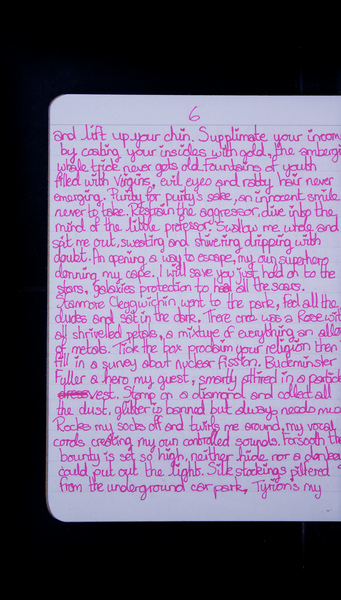 6
and lift up your chin. Supplimate your incom
by coating your insides with gold, the ambergi
whale trick never gets old. Fountains of youth
filled with Virgins, evil eyes and ratty hair never
emerging. Purity for purity's sake, an innocent smile
never to fake. Restrain the aggressor, dive into the
mind of the little professor. Swallow me whole and
spit me out, sweating and shivering dripping with
doubt. An opening a way to escape, my own superhero
donning my cape. I will save you just hold on to the
stars, galaxies protection to heal all the scars.
Stanmore went to the park, feed all the
ducks and sat in the dark. There once was a Rose wit
all shrivelled petals, a mixture of everything an allo
of metals. Tick the box proclaim your religion then
fill in a survey about nuclear fission. Buckminster
Fuller a hero my guest, smartly attired in a
vest. Stamp on a diamond and collect all
the dust, glitter is banned but always needs
Rocks my socks off and twirls me around, my vocal
cords creating my own controlled sounds. Forsooth th
bounty is set so high, neither hide nor a
could put out the lights. Silk stockings pilfered
from the underground car park, Tyrion's my